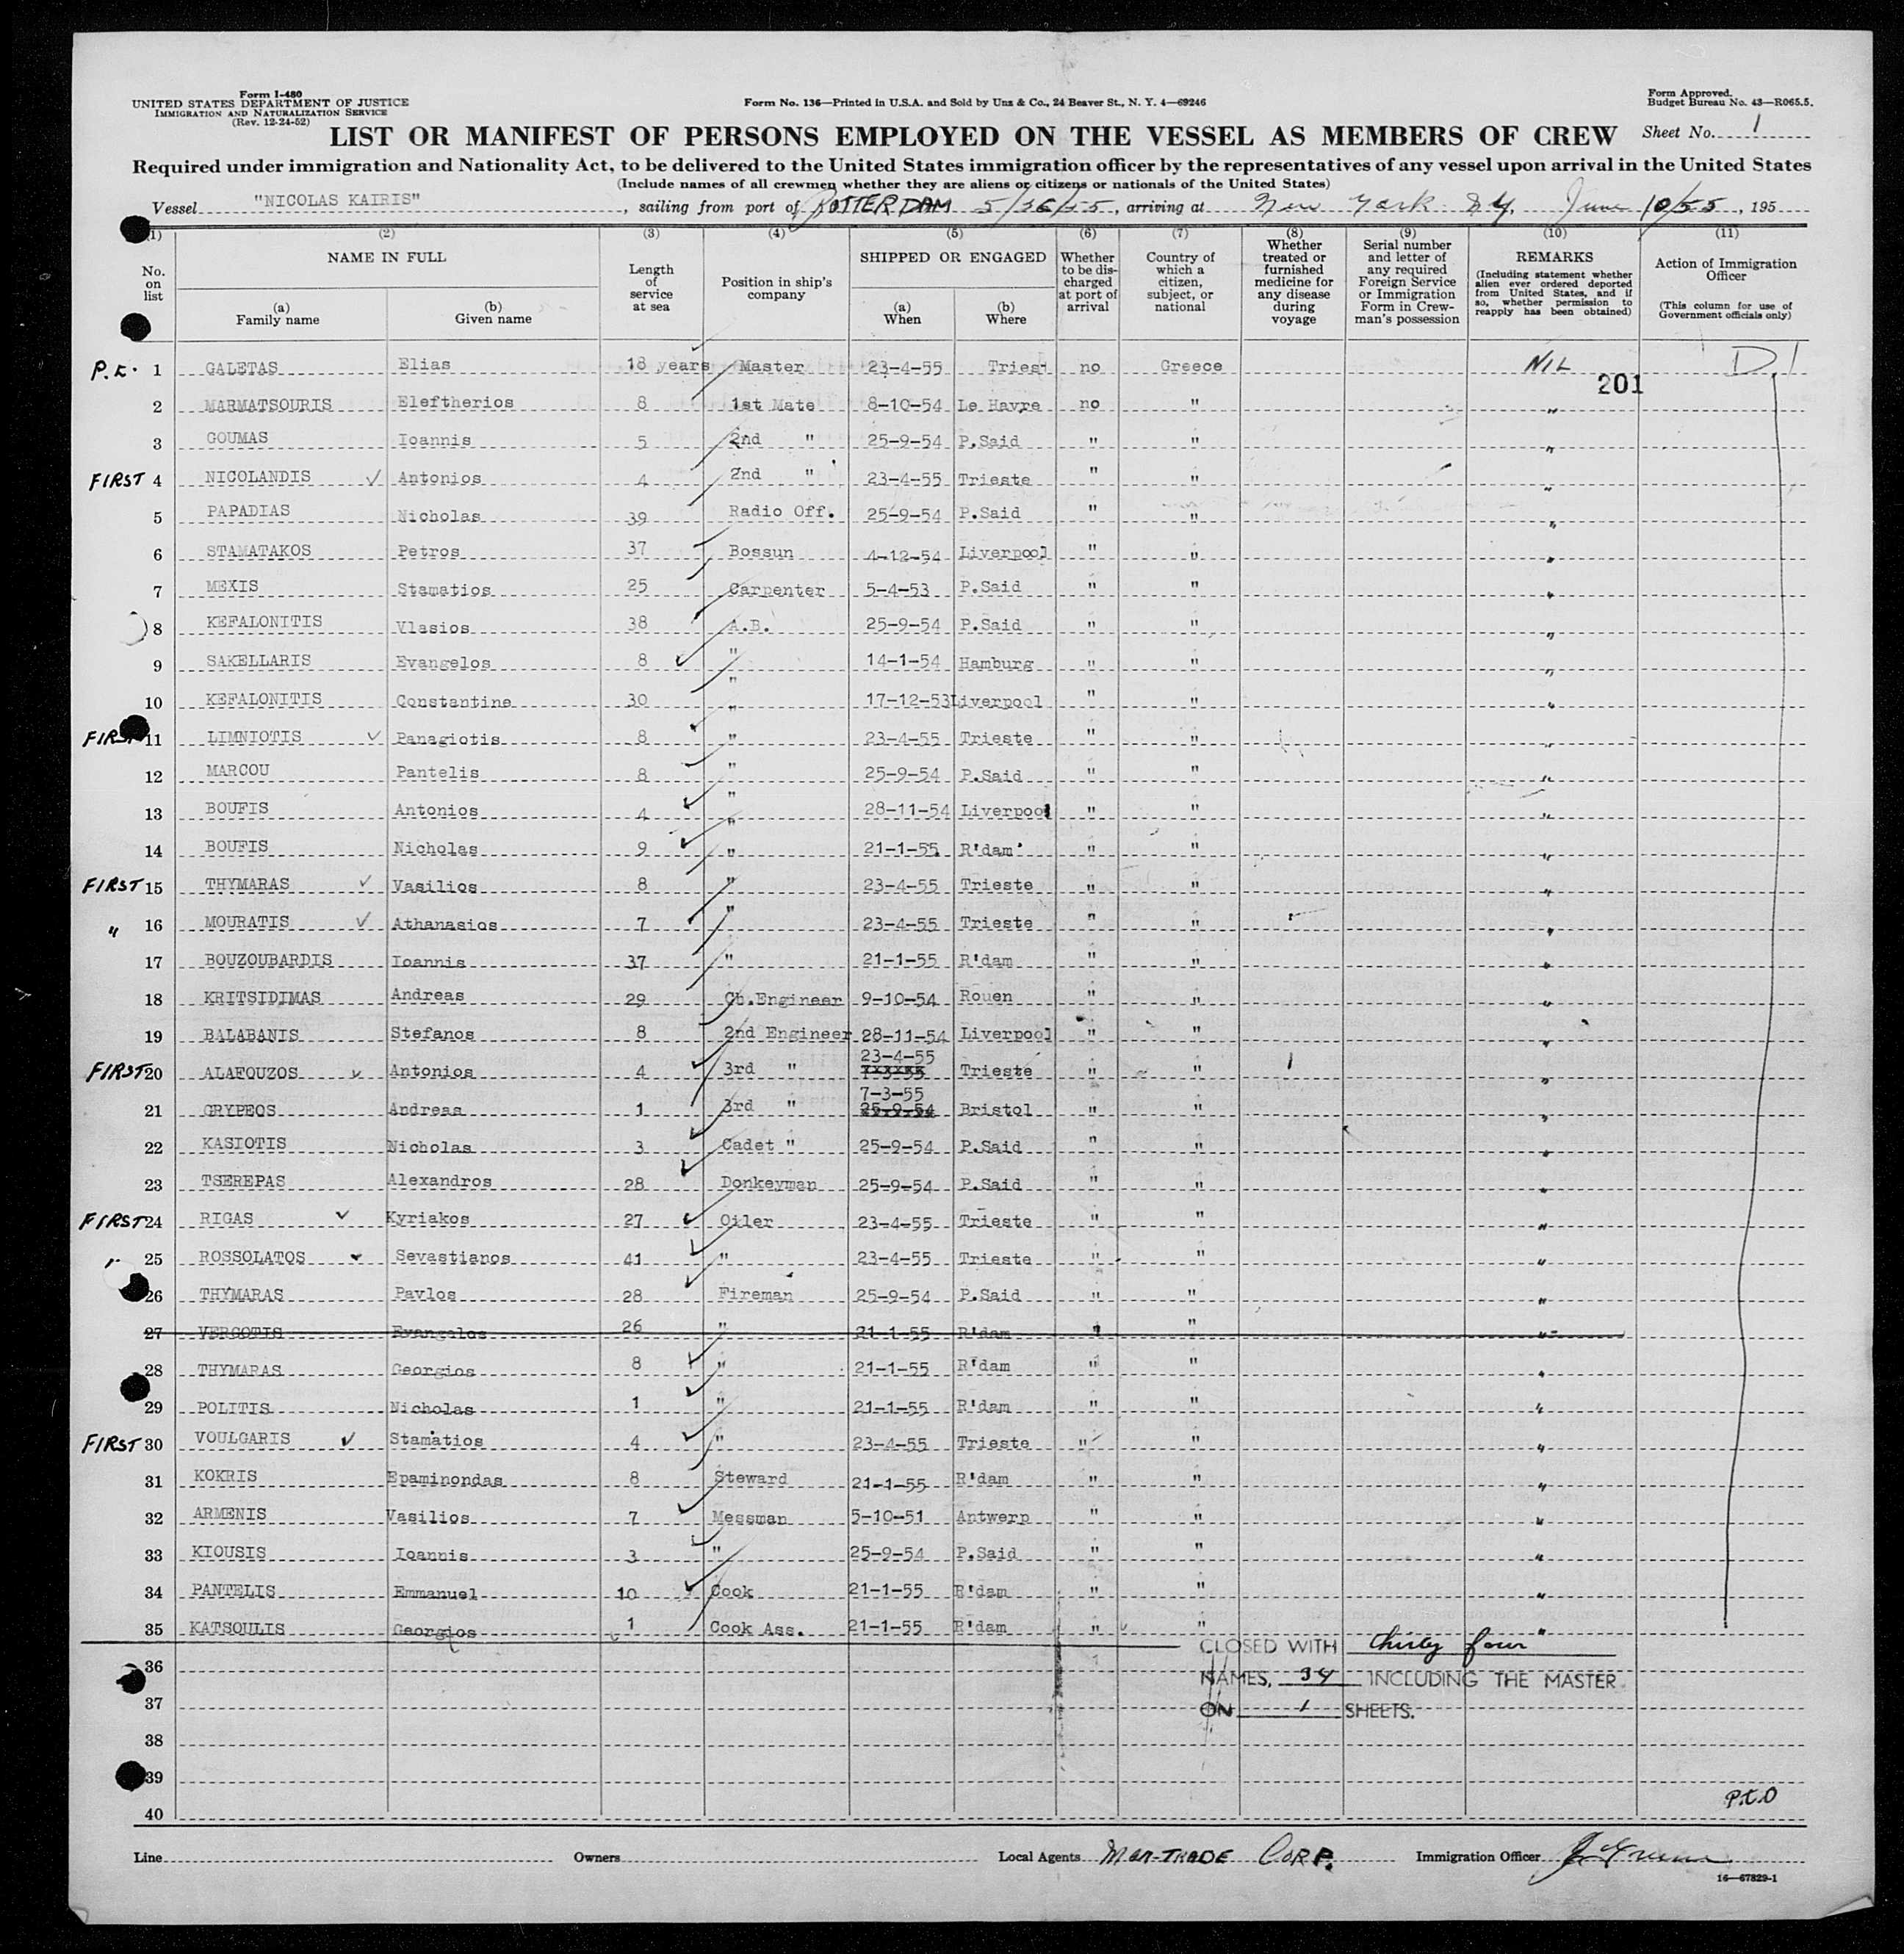 Form I-480
UNITED STATES DEPARTMENT OF JUSTICE
IMMIGRATION AND NATURALIZATION SERVICE
(Rev. 12-24-52)
Form No. 136—Printed in U.S.A. and Sold by Unz & Co., 24 Beaver St., N. Y. 4—69246
Form Approved.
Budget Bureau No. 43—R065.5.
LIST OR MANIFEST OF PERSONS EMPLOYED ON THE VESSEL AS MEMBERS OF CREW Sheet No. 1
Required under immigration and Nationality Act, to be delivered to the United States immigration officer by the representatives of any vessel upon arrival in the United States
(Include names of all crewmen whether they are aliens or citizens or nationals of the United States)
Vessel "NICOLAS KAIRIS", sailing from port of ROTTERDAM 5/26/55, arriving at New York N.Y. June 10/55, 195
(1) (2) (3) (4) (5) (6) (7) (8) (9) (10) (11)
No. on list
NAME IN FULL
(a) Family name
(b) Given name
Length of service at sea
Position in ship's company
SHIPPED OR ENGAGED
(a) When
(b) Where
Whether to be discharged at port of arrival
Country of which a citizen, subject, or national
Whether treated or furnished medicine for any disease during voyage
Serial number and letter of any required Foreign Service or Immigration Form in Crewman's possession
REMARKS
(Including statement whether alien ever ordered deported from United States, and if so, whether permission to reapply has been obtained)
Action of Immigration Officer
(This column for use of Government officials only)
1 GALETAS Elias 18 years Master 23-4-55 Triest no Greece NIL D.1
201
2 MARMATSOURIS Eleftherios 8 1st Mate 8-10-54 Le Havre no " "
3 GOUMAS Ioannis 5 2nd " 25-9-54 P.Said " " "
FIRST 4 NICOLANDIS ✓ Antonios 4 2nd " 23-4-55 Trieste " " "
5 PAPADIAS Nicholas 39 Radio Off. 25-9-54 P.Said " " "
6 STAMATAKOS Petros 37 Bossun 4-12-54 Liverpool " " "
7 MEXIS Stamatios 25 Carpenter 5-4-53 P.Said " " "
8 KEFALONITIS Vlasios 38 A.B. 25-9-54 P.Said " " "
9 SAKELLARIS Evangelos 8 " 14-1-54 Hamburg " " "
10 KEFALONITIS Constantine 30 " 17-12-53 Liverpool " " "
FIRST 11 LIMNIOTIS ✓ Panagiotis 8 " 23-4-55 Trieste " " "
12 MARCOU Pantelis 8 " 25-9-54 P.Said " " "
13 BOUFIS Antonios 4 " 28-11-54 Liverpool " " "
14 BOUFIS Nicholas 9 " 21-1-55 R'dam " " "
FIRST 15 THYMARAS ✓ Vasilios 8 " 23-4-55 Trieste " " "
" 16 MOURATIS ✓ Athanasios 7 " 23-4-55 Trieste " " "
17 BOUZOUBARDIS Ioannis 37 " 21-1-55 R'dam " " "
18 KRITSIDIMAS Andreas 29 Ch.Engineer 9-10-54 Rouen " " "
19 BALABANIS Stefanos 8 2nd Engineer 28-11-54 Liverpool " " "
FIRST 20 ALAFOUZOS ✓ Antonios 4 3rd " 23-4-55 7-3-55 Trieste " " "
21 GRYPEOS Andreas 1 3rd " 7-3-55 25-9-54 Bristol " " "
22 KASIOTIS Nicholas 3 Cadet " 25-9-54 P.Said " " "
23 TSEREPAS Alexandros 28 Donkeyman 25-9-54 P.Said " " "
FIRST 24 RIGAS ✓ Kyriakos 27 Oiler 23-4-55 Trieste " " "
" 25 ROSSOLATOS ✓ Sevastianos 41 " 23-4-55 Trieste " " "
26 THYMARAS Pavlos 28 Fireman 25-9-54 P.Said " " "
27 VERGOTIS Evangelos 26 " 21-1-55 R'dam " " "
28 THYMARAS Georgios 8 " 21-1-55 R'dam " " "
29 POLITIS Nicholas 1 " 21-1-55 R'dam " " "
FIRST 30 VOULGARIS ✓ Stamatios 4 " 23-4-55 Trieste " " "
31 KOKRIS Epaminondas 8 Steward 21-1-55 R'dam " " "
32 ARMENIS Vasilios 7 Messman 5-10-51 Antwerp " " "
33 KIOUSIS Ioannis 3 " 25-9-54 P.Said " " "
34 PANTELIS Emmanuel 10 Cook 21-1-55 R'dam " " "
35 KATSOULIS Georgios 1 Cook Ass. 21-1-55 R'dam " " "
CLOSED WITH thirty four
36
NAMES, 34 INCLUDING THE MASTER
37
ON 1 SHEETS.
38
39
40
P.T.O
Line Owners Local Agents MAR-TRADE CORP. Immigration Officer
16—67829-1